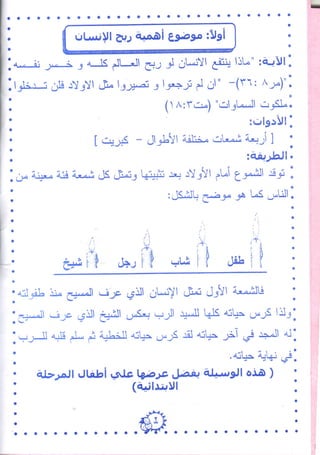 أولاً: موضوع أهمية ربح الإنسان
الآية: "ماذا ينتفع الإنسان لو ربح العالم كله و خسر نفسه
"(مر ٨ : ٣٦)- "إن لم ترجعوا و تصيروا مثل الأولاد فلن تدخلوا
ملكوت السماوات "(مت١٨:٣)
الأدوات:
[ أربع شمعات مختلفة الأطوال - كبريت ]
الطريقة:
توقد الشموع أمام الأولاد بعد تثبيتها وتمثل كل شمعة فئة معينة من
الناس كما هو موضح بالشكل:
طفل
شاب
رجل
شيخ
فالشمعة الأولى تمثل الإنسان الذي عرف المسيح منذ طفولته
لذا كرس حياته كلها للسيد الرب بعكس الشيخ الذي عرف المسيح
له المجد في آخر حياته لقد كرس حياته للخطية ثم سلم قلبه للرب
في نهاية حياته.
( هذه الوسيلة يفضل عرضها على أطفال المرحلة
الابتدائية)